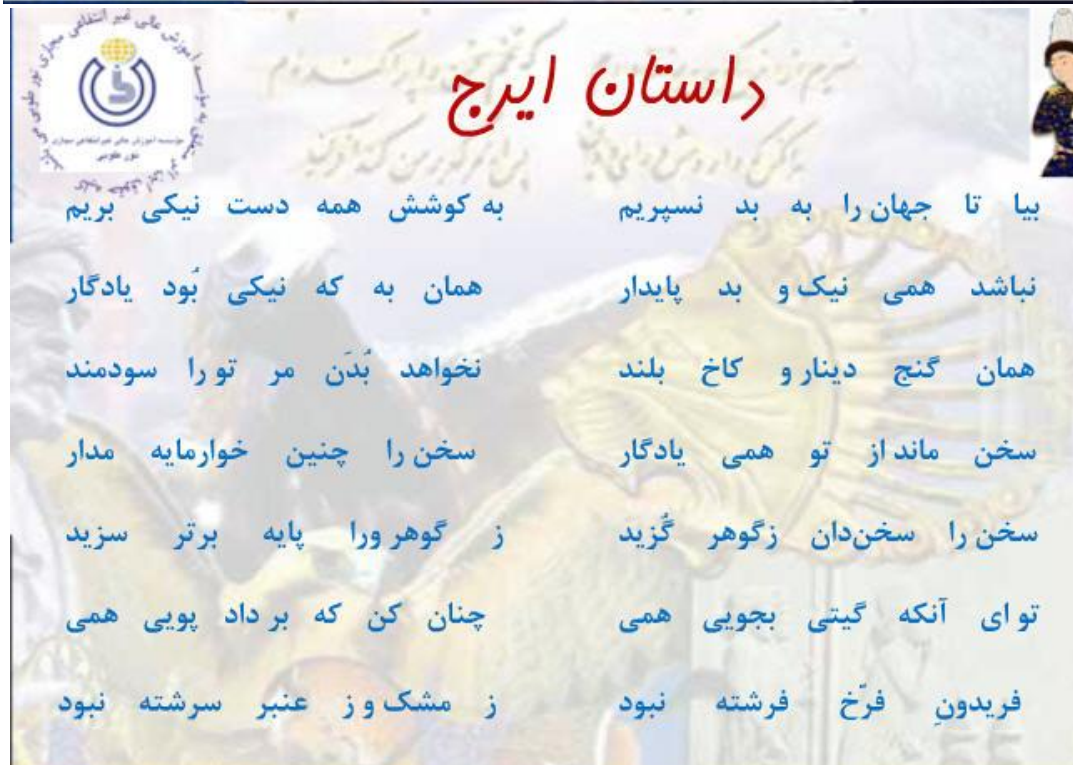 داستان ایرج
مؤسسه آموزش عالی غیرانتفاعی مجازی
نور طوبی
بیا تا جهان را به بد نسپریم به کوشش همه دست نیکی بریم
نباشد همی نیک و بد پایدار همان به که نیکی بُود یادگار
همان گنج دینار و کاخ بلند نخواهد بُدَن مر تو را سودمند
سخن ماند از تو همی یادگار سخن را چنین خوارمایه مدار
سخن را سخن‌دان زگوهر گُزید ز گوهر ورا پایه برتر سزید
تو ای آنکه گیتی بجویی همی چنان کن که بر داد پویی همی
فریدونِ فرّخ فرشته نبود ز مشک و ز عنبر سرشته نبود